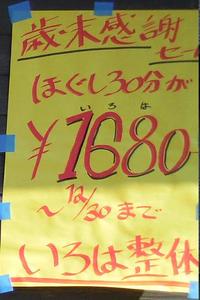 歳末感謝
セー
ほぐし30分が
いろは
¥1680
～12/30まで
いろは整体